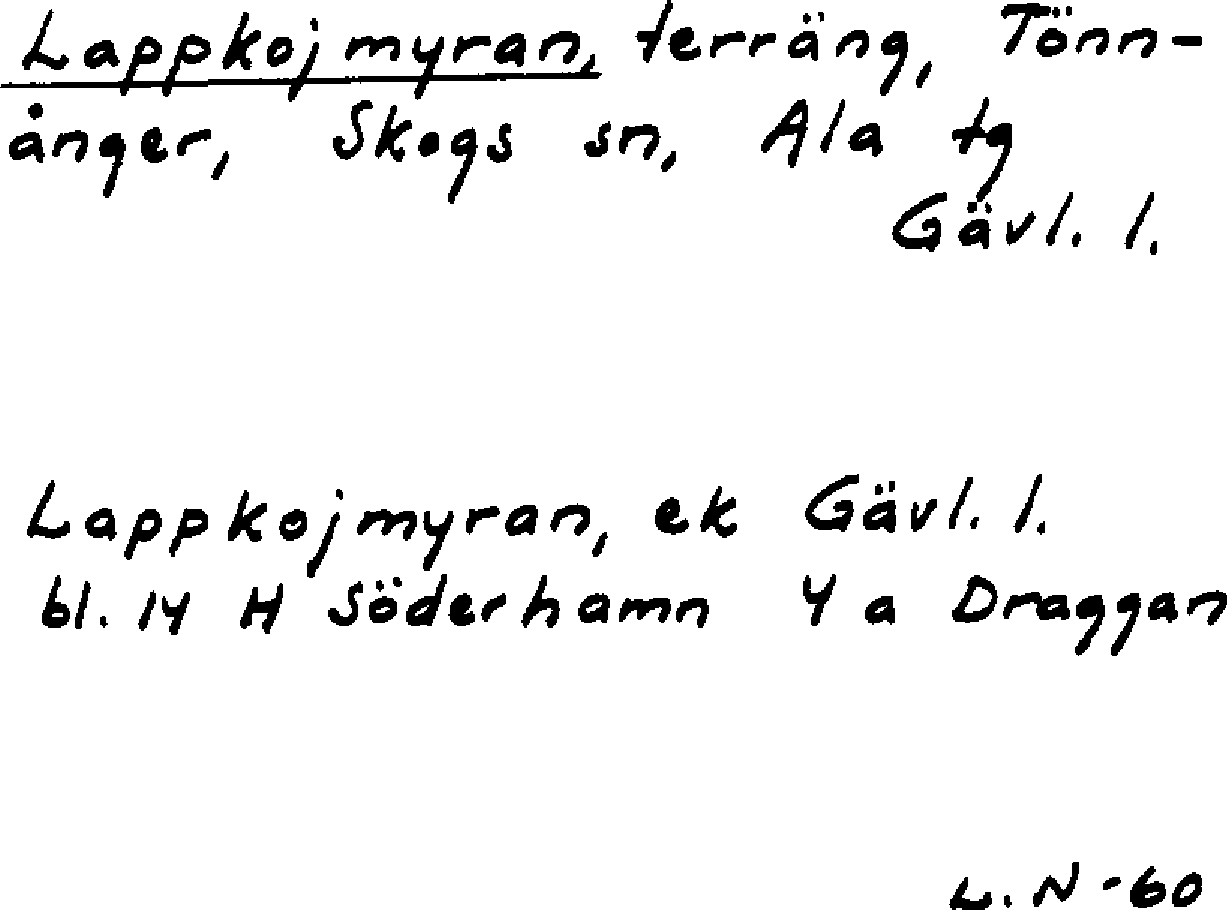 Lappkojmyran, terräng, Tönn-
ånger, Skogs sn, Ala tg
Gävl. l.
Lappkojmyran, ek Gävl. l.
bl. 14 H Söderhamn 4 a Draggan
L. N -60